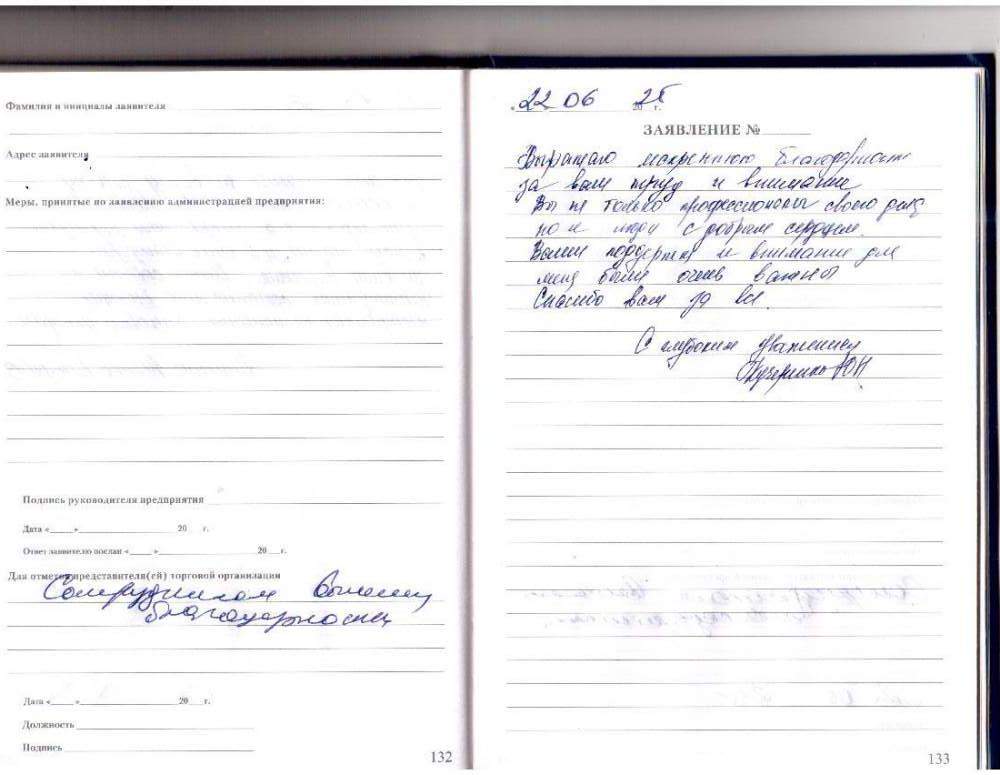 Фамилия и инициалы заявителя
Адрес заявителя
Меры, принятые по заявлению администрацией предприятия:
Подпись руководителя предприятия
Дата «___» 20 г.
Ответ заявителю послан «___» 20 г.
Для отметок представителя(ей) торговой организации
Сотрудникам вынесен
благодарность
Дата «___» 20 г.
Должность
Подпись
132
«22 06 2025 г.
ЗАЯВЛЕНИЕ №
Выражаю искреннюю благодарность
за ваш труд и внимание
Вы не только профессионалы своего дела
но и люди с добрым сердцем.
Ваши поддержка и внимание для
меня были очень важны
Спасибо вам за все.
С глубоким уважением
133